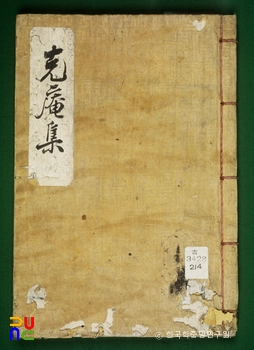 克庵集
古
3428
214
한국학중앙연구원